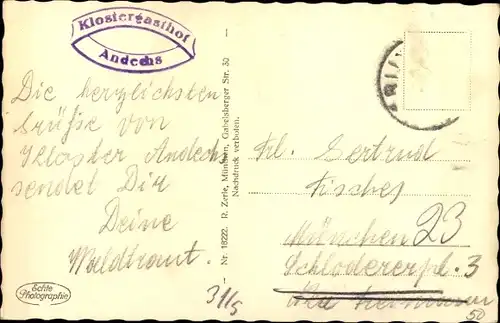 Klostergasthof
Andechs
Die herzlichsten
Grüße von
Kloster Andechs
sendet Dir
Deine
Waldtraut.
Echte
Photographie
Nr. 18222. R. Zerle, München, Gabelsberger Str. 30
Nachdruck verboten.
Frl. Gertrud
Fischer
München 23
Schlodererpl. 3
31/5
50